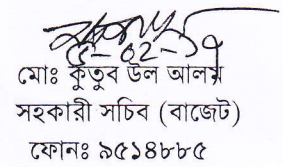 মোঃ কুতুব উল আলম
সহকারী সচিব (বাজেট)
ফোনঃ ৯৫১৪৮৮৫